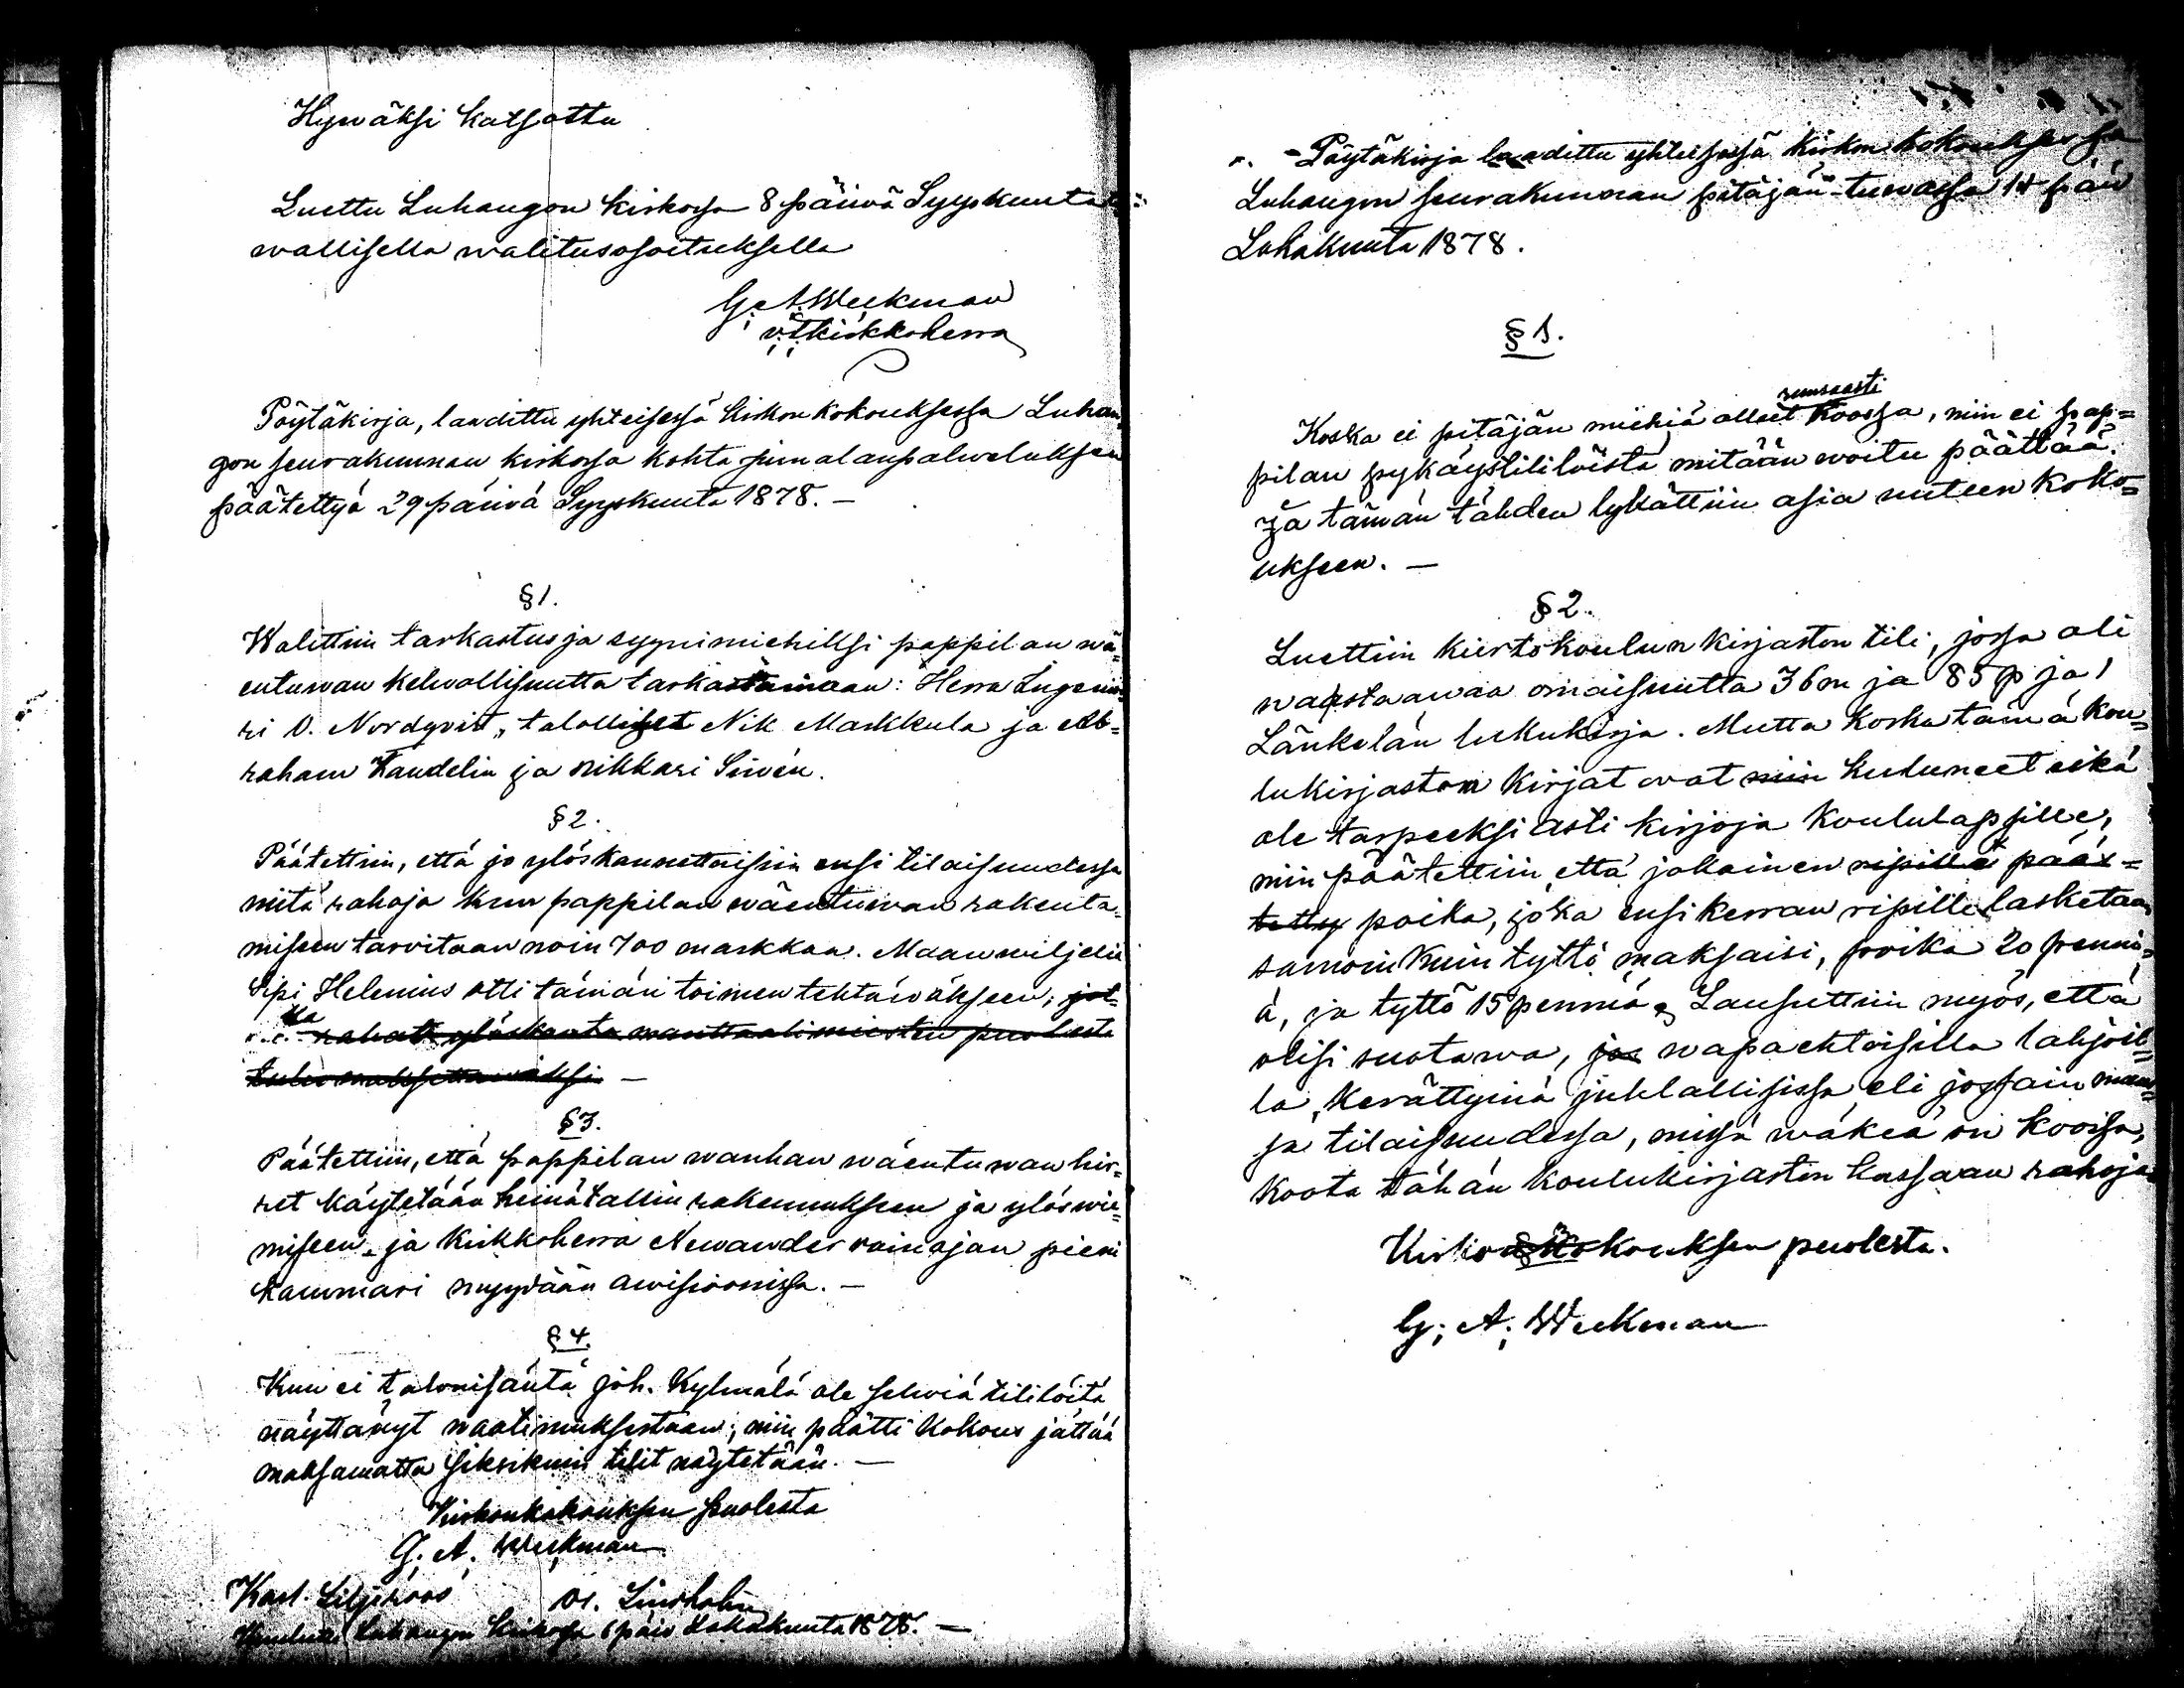 Hywäksi katsottu
Luettu Luhangon kirkossa 8 päivä Syyskuuta
wallisella walitusosoituksella
G. A. Weckman
v.t. kirkkoherra
Pöytäkirja, laadittu yhteisessä kirkon kokouksessa Luhan
gon seurakunnan kirkossa kohta jumalanpalweluksen
päätettyä 29 päivä Syyskuuta 1878. —
§ 1.
Walittiin tarkastus ja syynimiehiksi pappilan wä¬
entuwan kelwollisuutta tarkastamaan: Herra Ingeniö
ri O. Nordqvist, talolliset Nik Markkula ja Ab=
raham Kandelin ja nikkari Sirvén.
§ 2.
Päätettiin, että jo ylöskannettaisiin ensi tilaisuudessa
niitä rahoja kun pappilan wäentuwan rakenta¬
miseen tarvitaan noin 700 markkaa. Maanwiljeliä
Sipi Helenius otti tämän toimen tehtäwäkseen, jot¬
ka rahat ylöskanta manttaalimiesten puolesta
tulee maksettawaksi —
§ 3.
Päätettiin, että pappilan wanhan wäentuwan hir=
ret käytetään heinätallin rakennukseen ja ylöswie¬
miseen, ja kirkkoherra Newander vainajan pieni
kammari myydään awisioonissa. —
§ 4.
Kun ei talonisäntä Joh. Kylmälä ole selwiä tililöitä
näyttänyt waatimuksestaan, niin päätti kokous jättää
maksamatta siksikuin tilit näytetään. —
Kirkonkokouksen puolesta
G. A. Weckman
Karl Liljeroos Lindholm
Luhangon kirkossa 6 päiv Lokakuuta 1878. —
Pöytäkirja laadittu yhteisessä kirkon kokouksessa
Luhangon seurakunnan pitäjän-tuwassa 14 päiv
Lokakuuta 1878.
§ 1.
runsaasti
Koska ei pitäjän miehiä olleet koossa, niin ei pap=
pilan pykäystililöistä mitään woitu päättää.
Ja tämän tähden lykättiin asia uuteen koko=
ukseen. —
§ 2.
Luettiin kiertokoulun kirjaston tili, jossa oli
waastaawaa omaisuutta 36 m ja 85 p ja 1
Länkelän lukukirja. Mutta koska tämä kou¬
lukirjaston kirjat owat niin kuluneet eikä
ole tarpeeksi asti kirjoja koululapsille,
niin päätettiin, että jokainen ripille pääs=
tetty poika, joka ensi kerran ripille lasketaan
samoin kuin tyttö maksaisi, poika 20 penni¬
ä, ja tyttö 15 penniä. Lausuttiin myös, että
olisi suotawa, jos wapaehtoisilla lahjoil¬
la, kerättyinä juhlallisissa eli jossain muus¬
sa tilaisuudessa, missä wäkeä on koossa,
koota tähän koulukirjaston kassaan rahoja.
Kirkonkokouksen puolesta.
G. A. Weckman